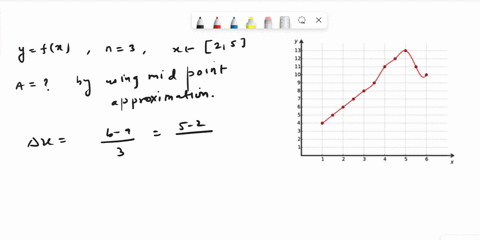 y = f(x) , n = 3 , x ∈ [2, 5]
A = ? by using mid point
approximation.
Δx = b-a/3 = 5-2/
13
12
11
10
9
8
7
6
5
4
3
2
1
1 2 3 4 5 6 x